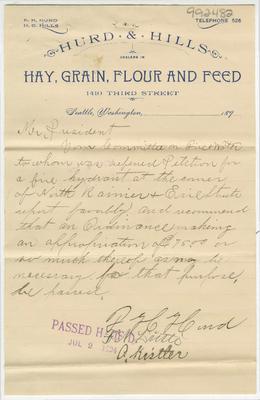 992482
R. H. HURD
H. G. HILLS
TELEPHONE 526
HURD & HILLS
DEALERS IN
HAY, GRAIN, FLOUR AND FEED
1410 THIRD STREET
Seattle, Washington, 189
Mr President
Your Committee on Fire &
to whom was referred Petition for
a fire hydrant at the corner
of North Rainier & Erie Streets
report favorably and recommend
that an Ordinance making
an appropriation of $75.00 or
so much thereof as may be
necessary for that purpose,
be passed.
R. H. Hurd
PASSED H. of D.
JUL 2 1894
A. Kistler